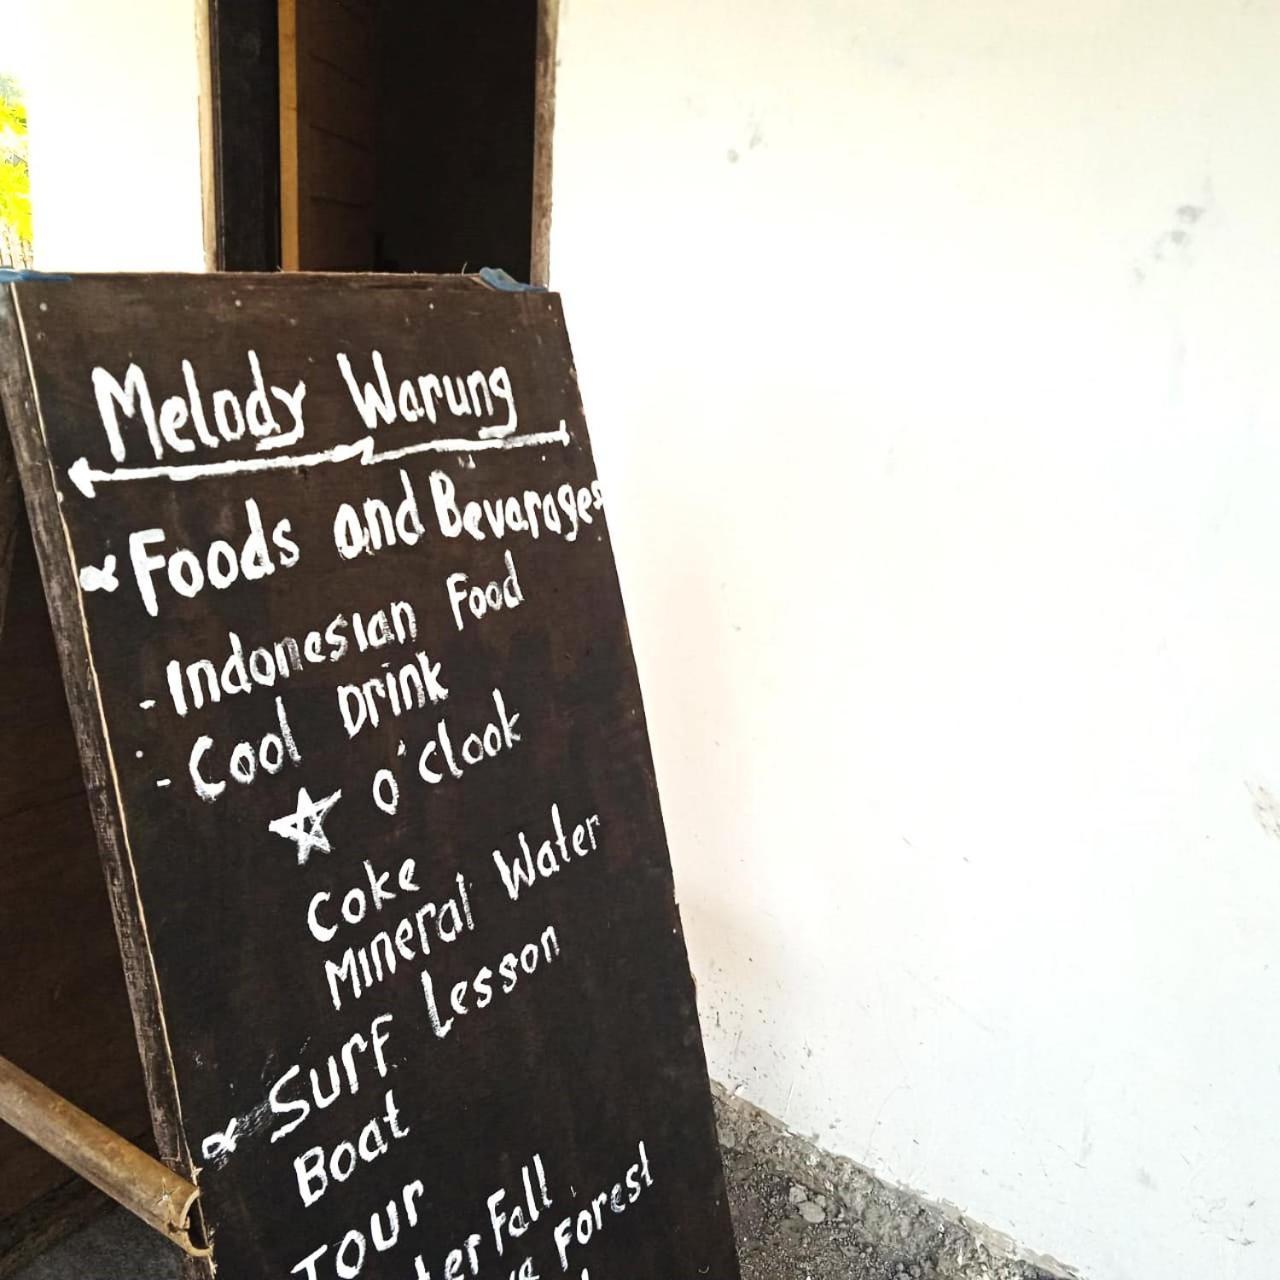 Melody Warung
Foods and Bevarages
- Indonesian Food
- Cool Drink
o'clook
Coke
Mineral Water
Surf Lesson
Boat
Tour
Fall
Forest